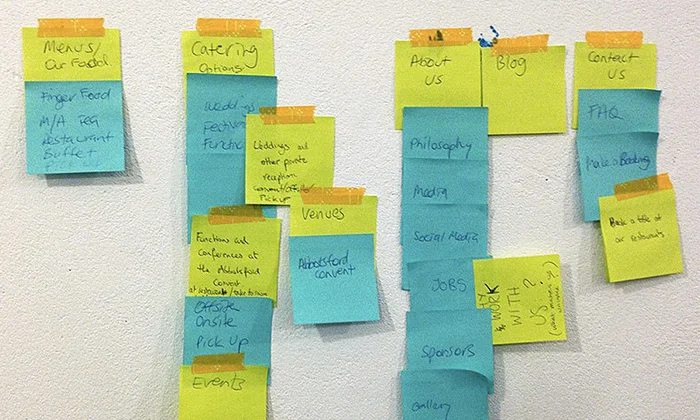 Menus/
Our Food
Finger Food
M/A Tea
Restaurant
Buffet
Pick up
Catering
Options
Weddings
Functi
Weddings and
other private
reception
convent/offsite/
Pick up
Venues
Abbotsford
convent
Functions and
conferences at
the Abbotsford
Convent
Offsite
Onsite
Pick Up
Events
About
Us
Philosophy
Media
Social Media
JOBS
WORK
WITH ?
US
Sponsors
Gallery
Blog
Contact
Us
FAQ
Make a Booking
Book a table at
our restaurants